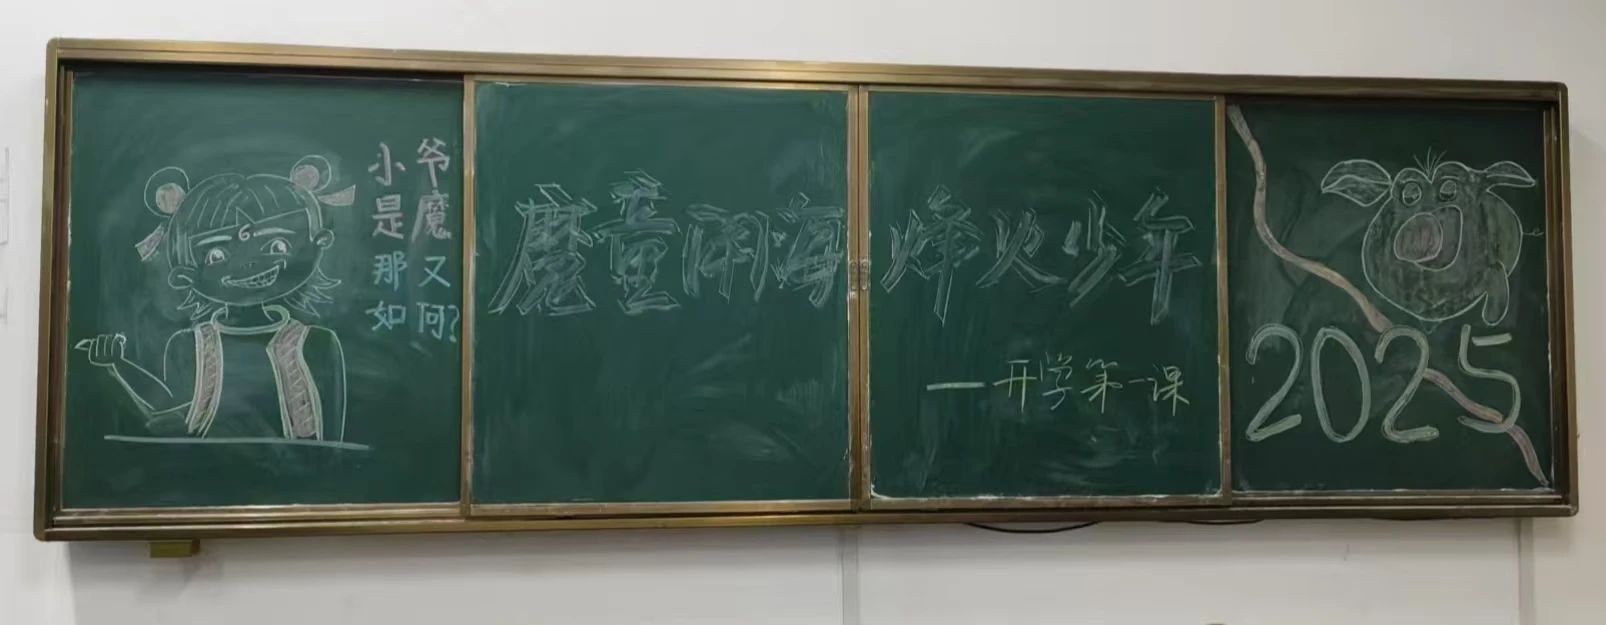 小爷
是魔
那又
如何?
魔童闹海 烽火少年
—开学第一课
2025